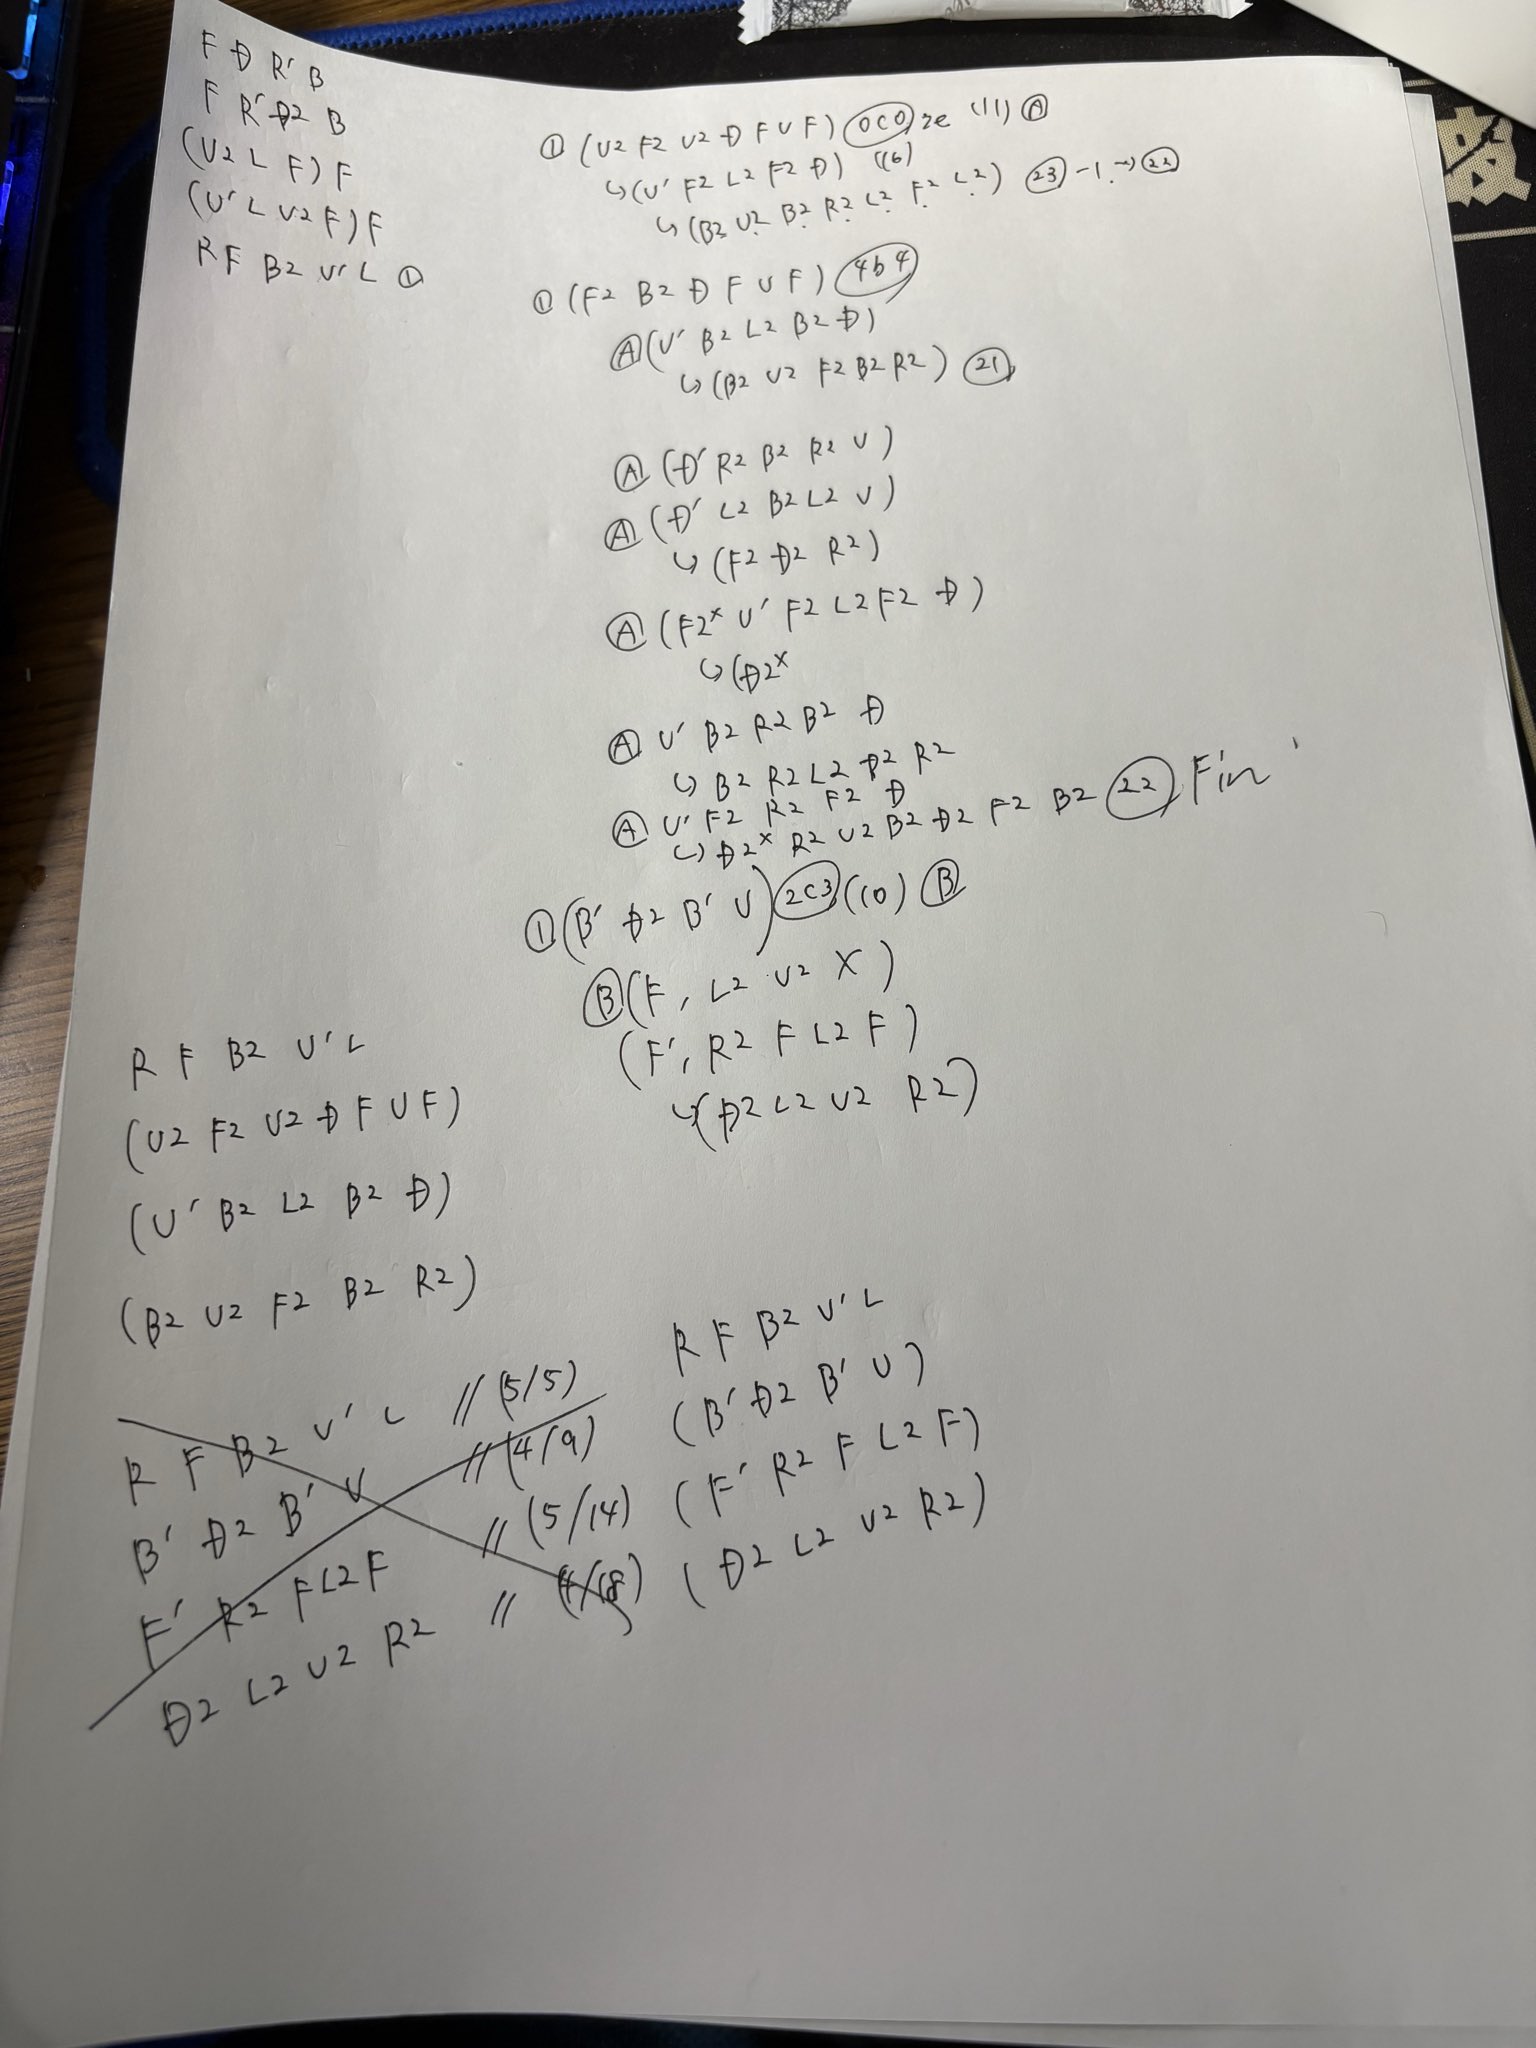 F D R' B
F R' D2 B
(U2 L F) F
(U' L U2 F) F
R F B2 U' L ①
① (U2 F2 U2 D F U F) 0c0 2e (11) Ⓐ
↳ (U' F2 L2 F2 D) (16)
↳ (B2 U2 B2 R2 L2 F2 L2) ㉓ -1 → ㉒
① (F2 B2 D F U F) 4b4
Ⓐ (U' B2 L2 B2 D)
↳ (B2 U2 F2 B2 R2) ㉑
Ⓐ (D' R2 B2 R2 U)
Ⓐ (D' L2 B2 L2 U)
↳ (F2 D2 R2)
Ⓐ (F2x U' F2 L2 F2 D)
↳ (D2x
Ⓐ U' B2 R2 B2 D
↳ B2 R2 L2 D2 R2
Ⓐ U' F2 R2 F2 D
↳ D2x R2 U2 B2 D2 F2 B2 ㉒ Fin
① (B' D2 B' U) 2c3 (10) Ⓑ
Ⓑ (F, L2 U2 X)
(F', R2 F L2 F)
↳ (D2 L2 U2 R2)
R F B2 U' L
(U2 F2 U2 D F U F)
(U' B2 L2 B2 D)
(B2 U2 F2 B2 R2)
R F B2 U' L // (5/5)
B' D2 B' U // (4/9)
F' R2 F L2 F // (5/14)
D2 L2 U2 R2 // (4/18)
R F B2 U' L
(B' D2 B' U)
(F' R2 F L2 F)
(D2 L2 U2 R2)